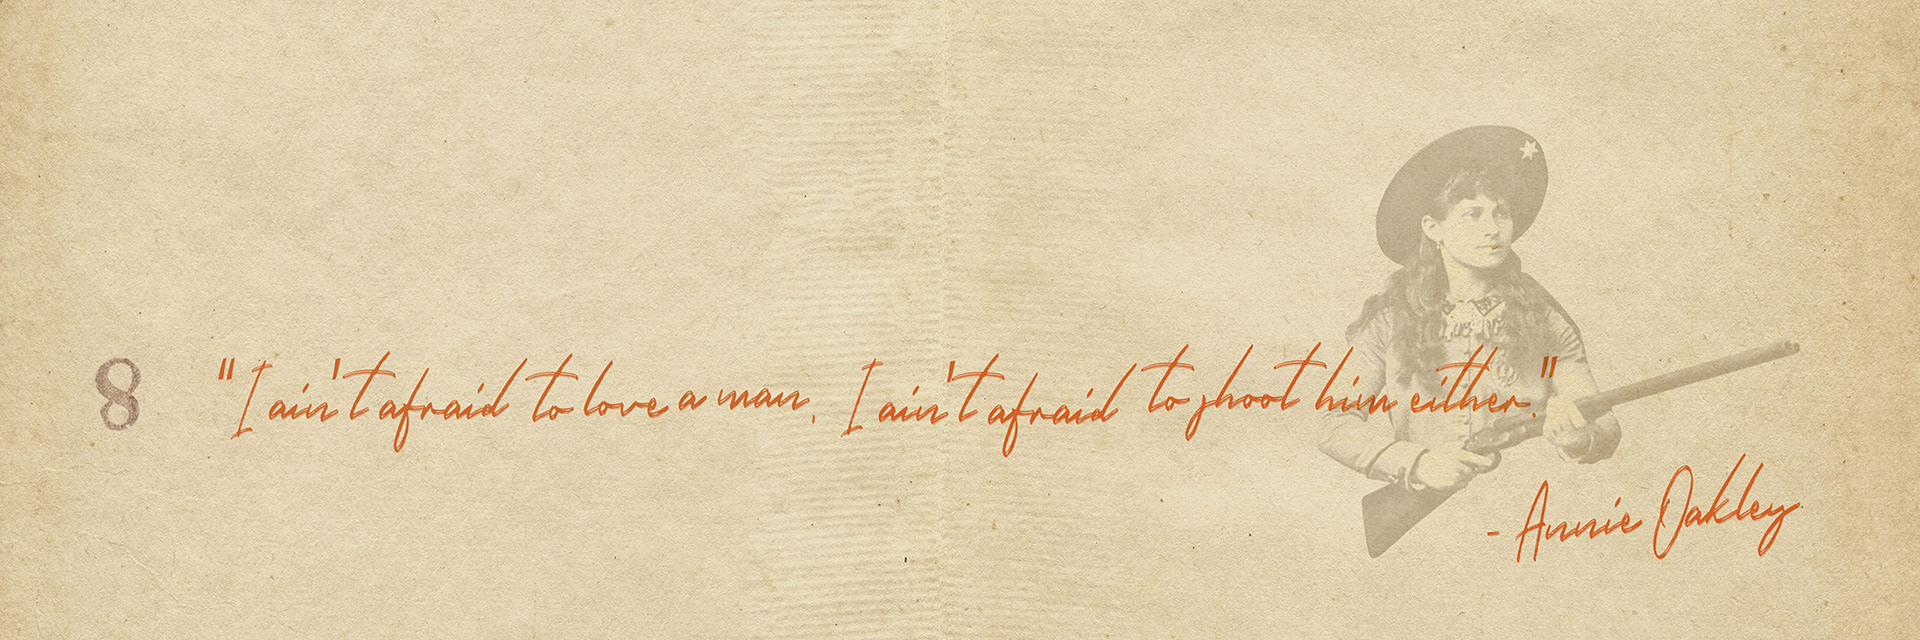 8
"I ain't afraid to love a man. I ain't afraid to shoot him either."
- Annie Oakley